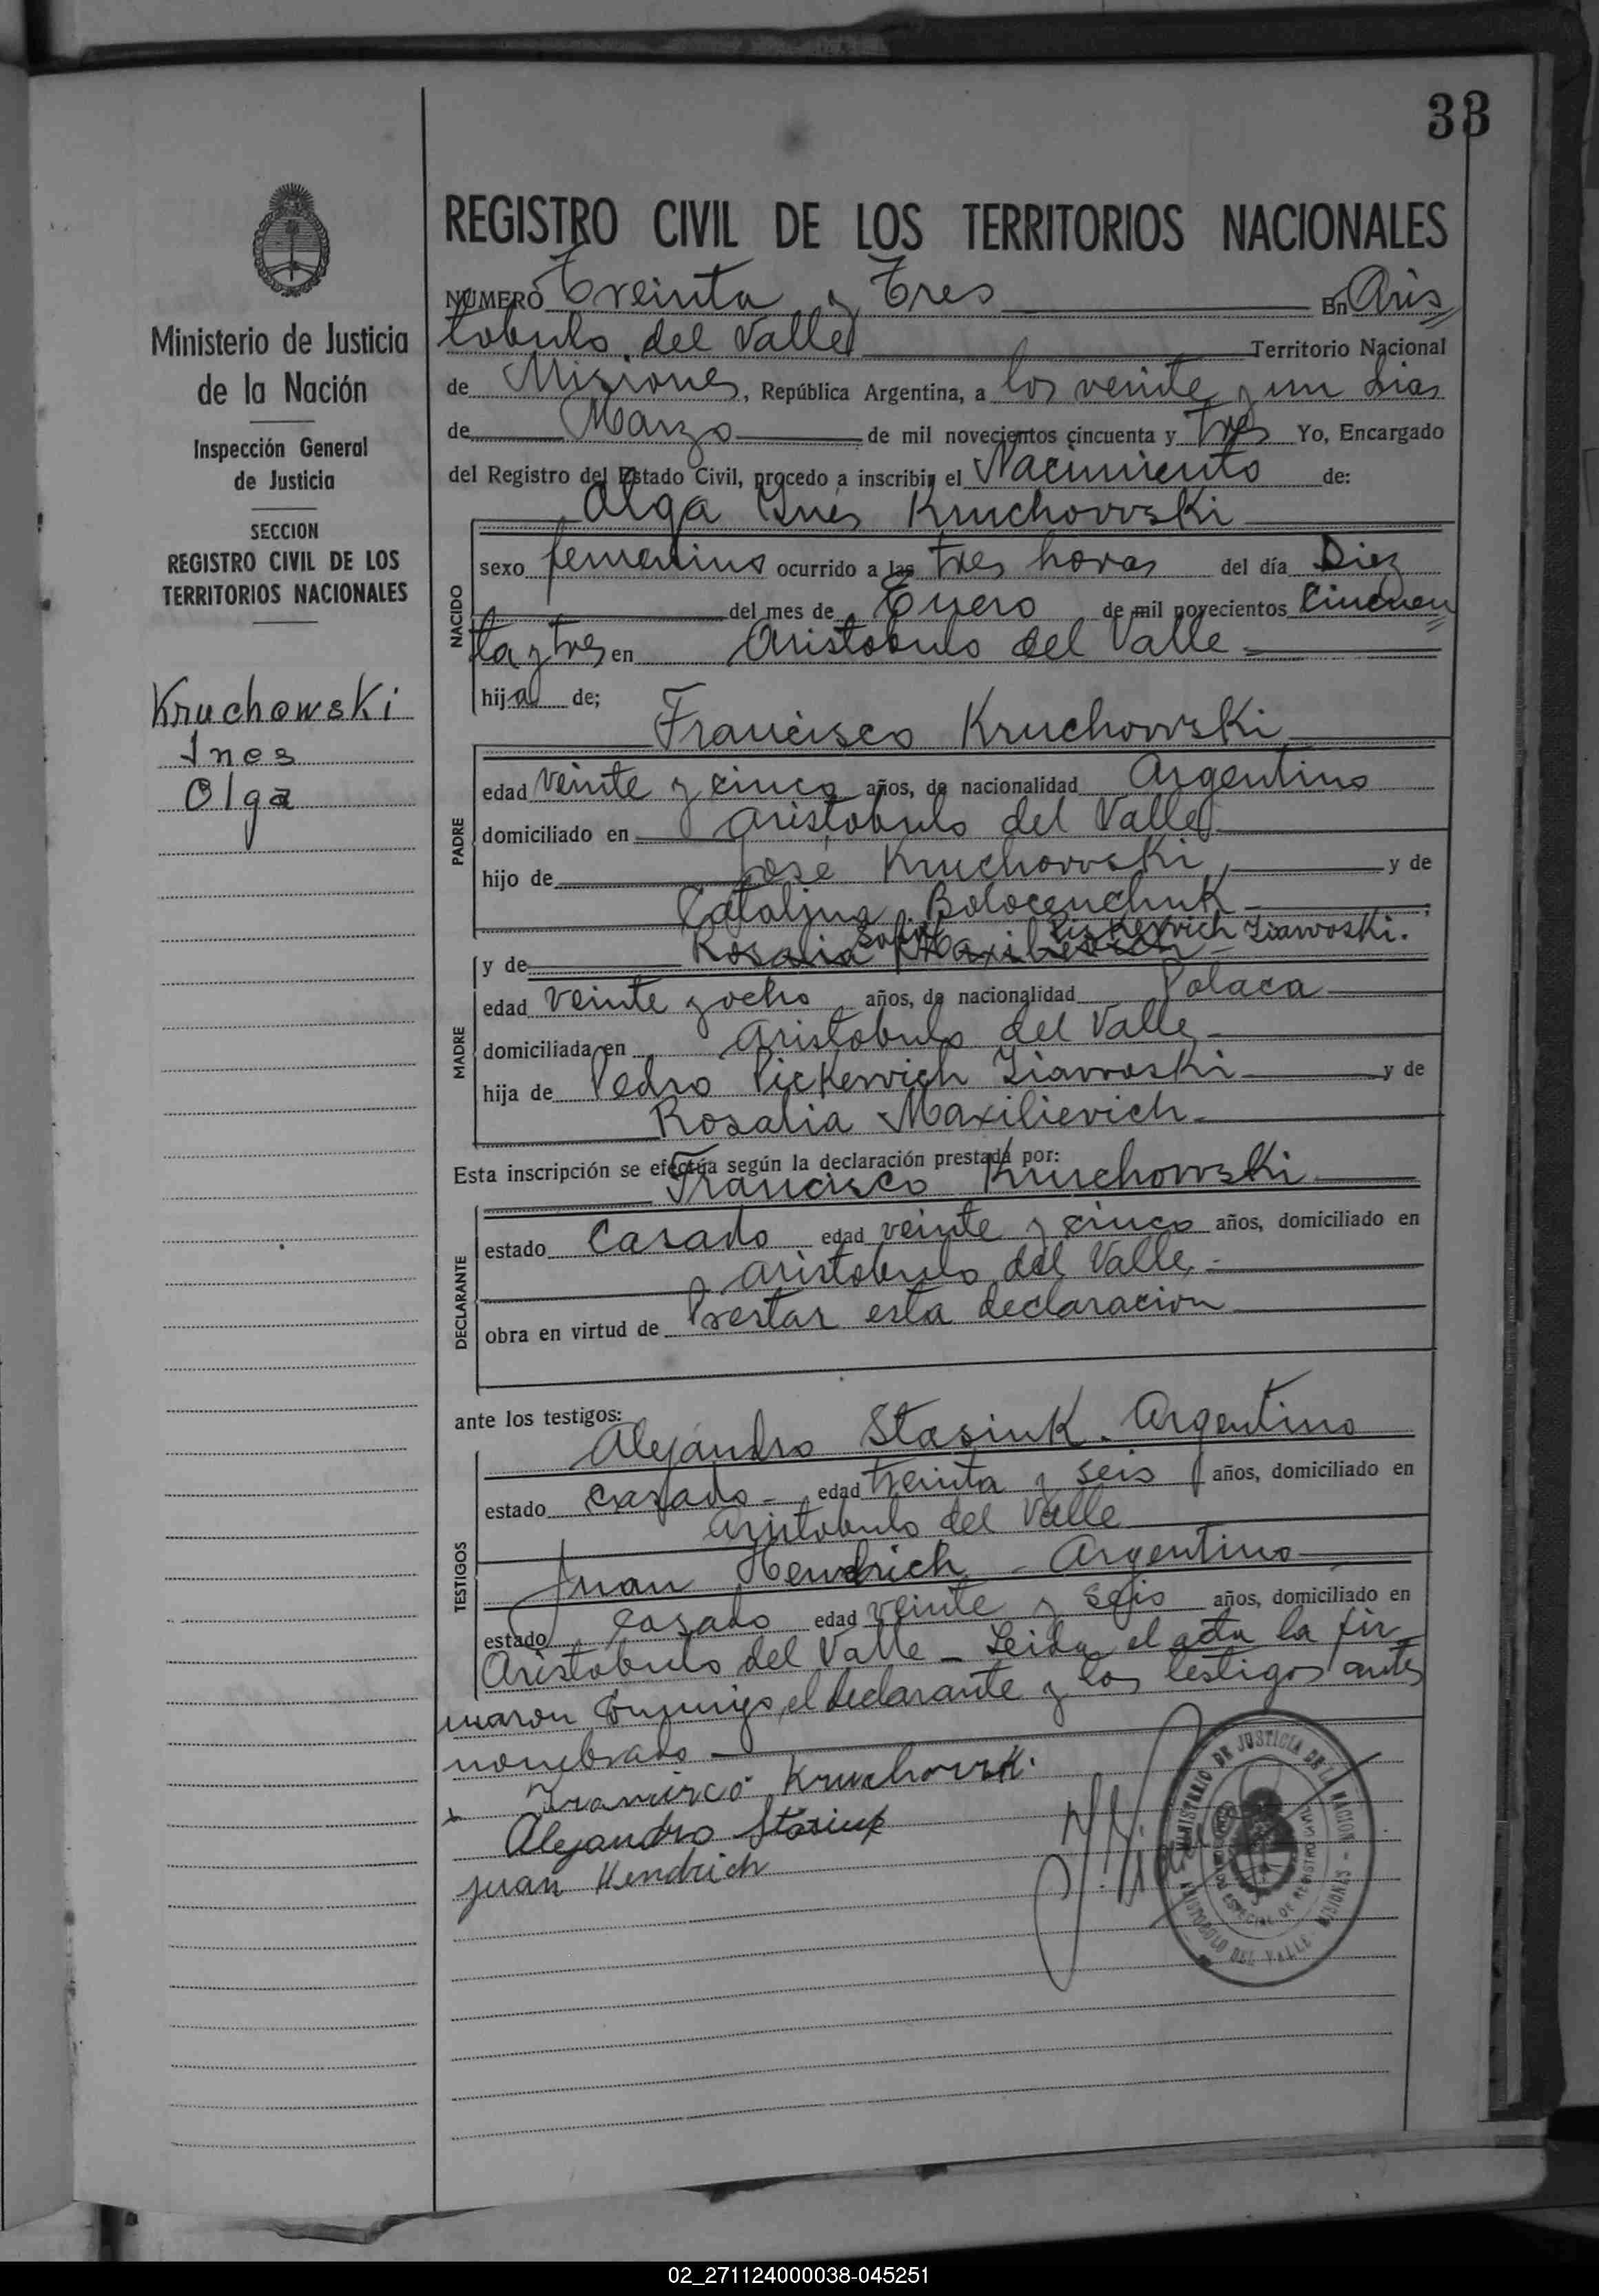 33
REGISTRO CIVIL DE LOS TERRITORIOS NACIONALES
Ministerio de Justicia
de la Nación
Inspección General
de Justicia
SECCION
REGISTRO CIVIL DE LOS
TERRITORIOS NACIONALES
Kruchowski
Ines
Olga
NÚMERO Treinta y Tres En Aris
tobulo del Valle Territorio Nacional
de Misiones, República Argentina, a los veinte y un dias
de Marzo de mil novecientos cincuenta y tres Yo, Encargado
del Registro del Estado Civil, procedo a inscribir el Nacimiento de:
Olga Ines Kruchowski
NACIDO
sexo femenino ocurrido a las tres horas del día Diez
del mes de Enero de mil novecientos cincuen
ta y tres en Aristobulo del Valle
hija de;
Francisco Kruchowski
PADRE
edad veinte y cinco años, de nacionalidad Argentino
domiciliado en Aristobulo del Valle
hijo de José Kruchowski y de
Catalina Bolocenchuk
Sofia Pickervich Ziawoski.
y de Rosalia Maxilievich
MADRE
edad veinte y ocho años, de nacionalidad Polaca
domiciliada en Aristobulo del Valle
hija de Pedro Pickervich Ziawoski y de
Rosalia Maxilievich
Esta inscripción se efectúa según la declaración prestada por:
Francisco Kruchowski
DECLARANTE
estado Casado edad veinte y cinco años, domiciliado en
Aristobulo del Valle
obra en virtud de Prestar esta declaracion
ante los testigos:
Alejandro Stasiuk - Argentino
TESTIGOS
estado casado - edad treinta y seis años, domiciliado en
Aristobulo del Valle
Juan Hendrich - Argentino
estado casado edad veinte y seis años, domiciliado en
Aristobulo del Valle - Leida el acta la fir
maron conmigo, el declarante y los testigos antes
nombrado
Francisco Kruchowski
Alejandro Stasiuk
Juan Hendrich
MINISTERIO DE JUSTICIA DE LA NACION
ARISTOBULO DEL VALLE - MISIONES
02_271124000038-045251